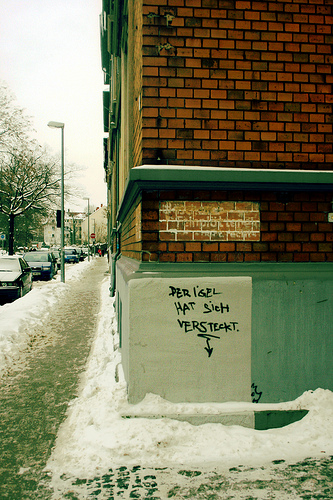 DER IGEL
HAT SICH
VERSTECKT.